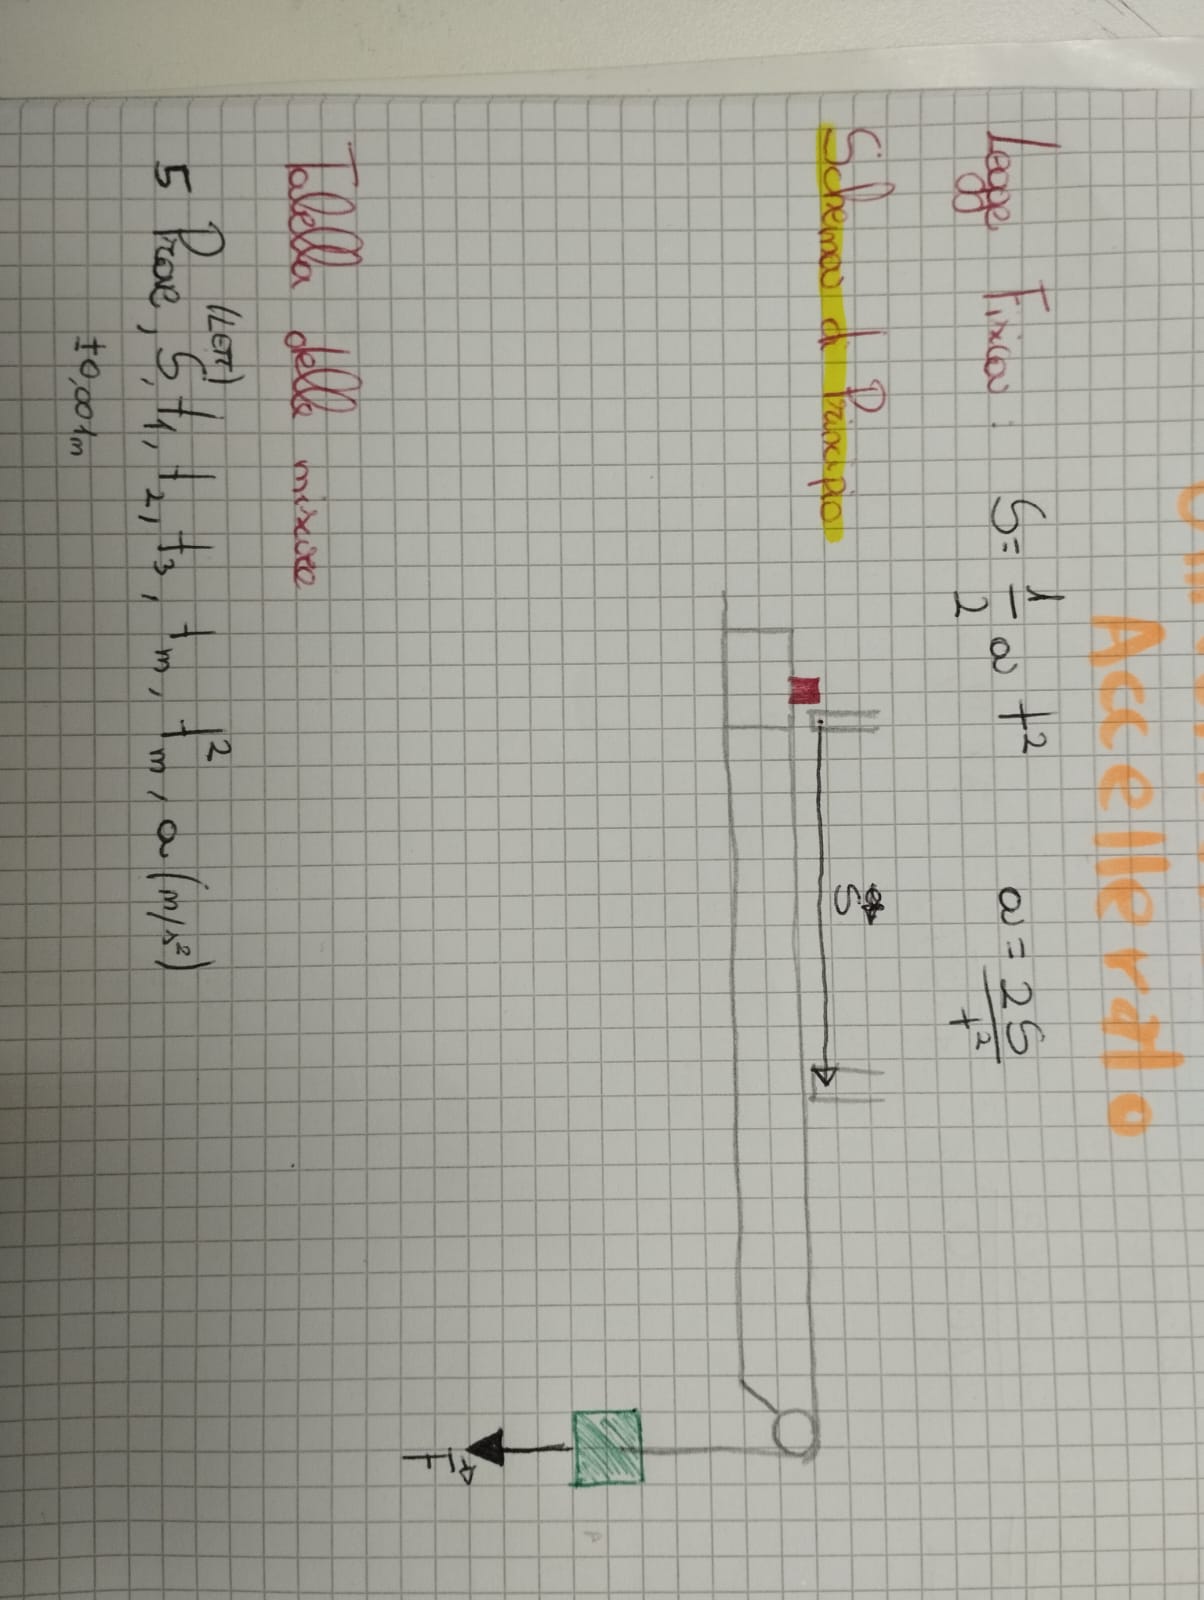 Accellerato
Legge Fisica: S = 1/2 a t² a = 2S/t²
Schema di Principio
S
F
Tabella delle misure
(LETT)
5 Prove, S, t₁, t₂, t₃, tₘ, t²ₘ, a (m/s²)
±0,001m